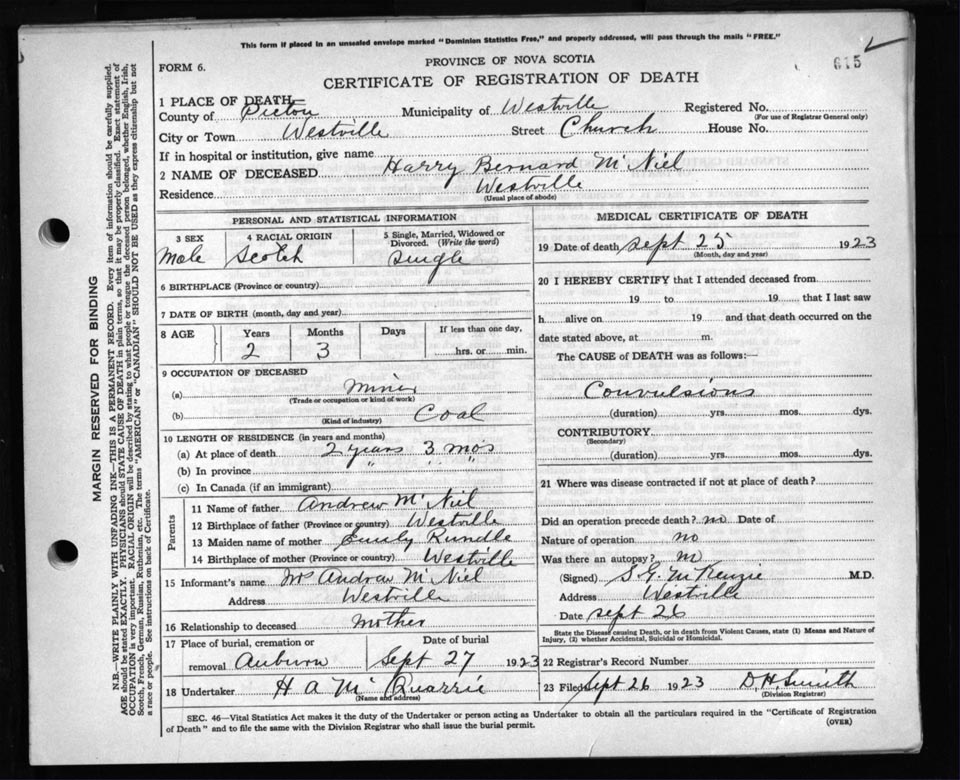 This form if placed in an unsealed envelope marked "Dominion Statistics Free," and properly addressed, will pass through the mails "FREE."
FORM 6.
PROVINCE OF NOVA SCOTIA
615
CERTIFICATE OF REGISTRATION OF DEATH
1 PLACE OF DEATH
County of Pictou Municipality of Westville Registered No.
(For use of Registrar General only)
City or Town Westville Street Church House No.
If in hospital or institution, give name
2 NAME OF DECEASED Harry Bernard McNiel
Residence Westville
(Usual place of abode)
PERSONAL AND STATISTICAL INFORMATION
3 SEX 4 RACIAL ORIGIN 5 Single, Married, Widowed or Divorced. (Write the word)
Male Scotch Single
6 BIRTHPLACE (Province or country)
7 DATE OF BIRTH (month, day and year)
8 AGE Years Months Days If less than one day,
2 3 hrs. or min.
9 OCCUPATION OF DECEASED
(a) Miner
(Trade or occupation or kind of work)
(b) Coal
(Kind of industry)
10 LENGTH OF RESIDENCE (in years and months)
(a) At place of death 2 years 3 mo's
(b) In province " " "
(c) In Canada (if an immigrant)
Parents
11 Name of father Andrew McNiel
12 Birthplace of father (Province or country) Westville
13 Maiden name of mother Emily Rundle
14 Birthplace of mother (Province or Country) Westville
15 Informant's name Mrs Andrew McNiel
Address Westville
16 Relationship to deceased Mother
17 Place of burial, cremation or removal Auburn
Date of burial Sept 27 1923
18 Undertaker H A McQuarrie
(Name and address)
MEDICAL CERTIFICATE OF DEATH
19 Date of death Sept 25 1923
(Month, day and year)
20 I HEREBY CERTIFY that I attended deceased from
19 to 19 that I last saw
h alive on 19 and that death occurred on the
date stated above, at m.
The CAUSE of DEATH was as follows:—
Convulsions
(duration) yrs. mos. dys.
CONTRIBUTORY
(Secondary)
(duration) yrs. mos. dys.
21 Where was disease contracted if not at place of death?
Did an operation precede death? no Date of
Nature of operation no
Was there an autopsy? no
(Signed) S G McKenzie M.D.
Address Westville
Date Sept 26
State the Disease causing Death, or in death from Violent Causes, state (1) Means and Nature of
Injury, (2) whether Accidental, Suicidal or Homicidal.
22 Registrar's Record Number
23 Filed Sept 26 1923 D.H. Smith
(Division Registrar)
SEC. 46—Vital Statistics Act makes it the duty of the Undertaker or person acting as Undertaker to obtain all the particulars required in the "Certificate of Registration
of Death" and to file the same with the Division Registrar who shall issue the burial permit.
(OVER)
MARGIN RESERVED FOR BINDING
N.B.—WRITE PLAINLY WITH UNFADING INK—THIS IS A PERMANENT RECORD. Every item of information should be carefully supplied.
AGE should be stated EXACTLY. PHYSICIANS should STATE CAUSE OF DEATH in plain terms, so that it may be properly classified. Exact statement of
OCCUPATION is very important. RACIAL ORIGIN will be described by stating to what people or tongue the deceased person belonged, whether English, Irish,
Scotch, French, German, Russian, Ruthenian, etc. The terms "AMERICAN" or "CANADIAN" SHOULD NOT BE USED as they express citizenship but not
a race or people. See instructions on back of Certificate.